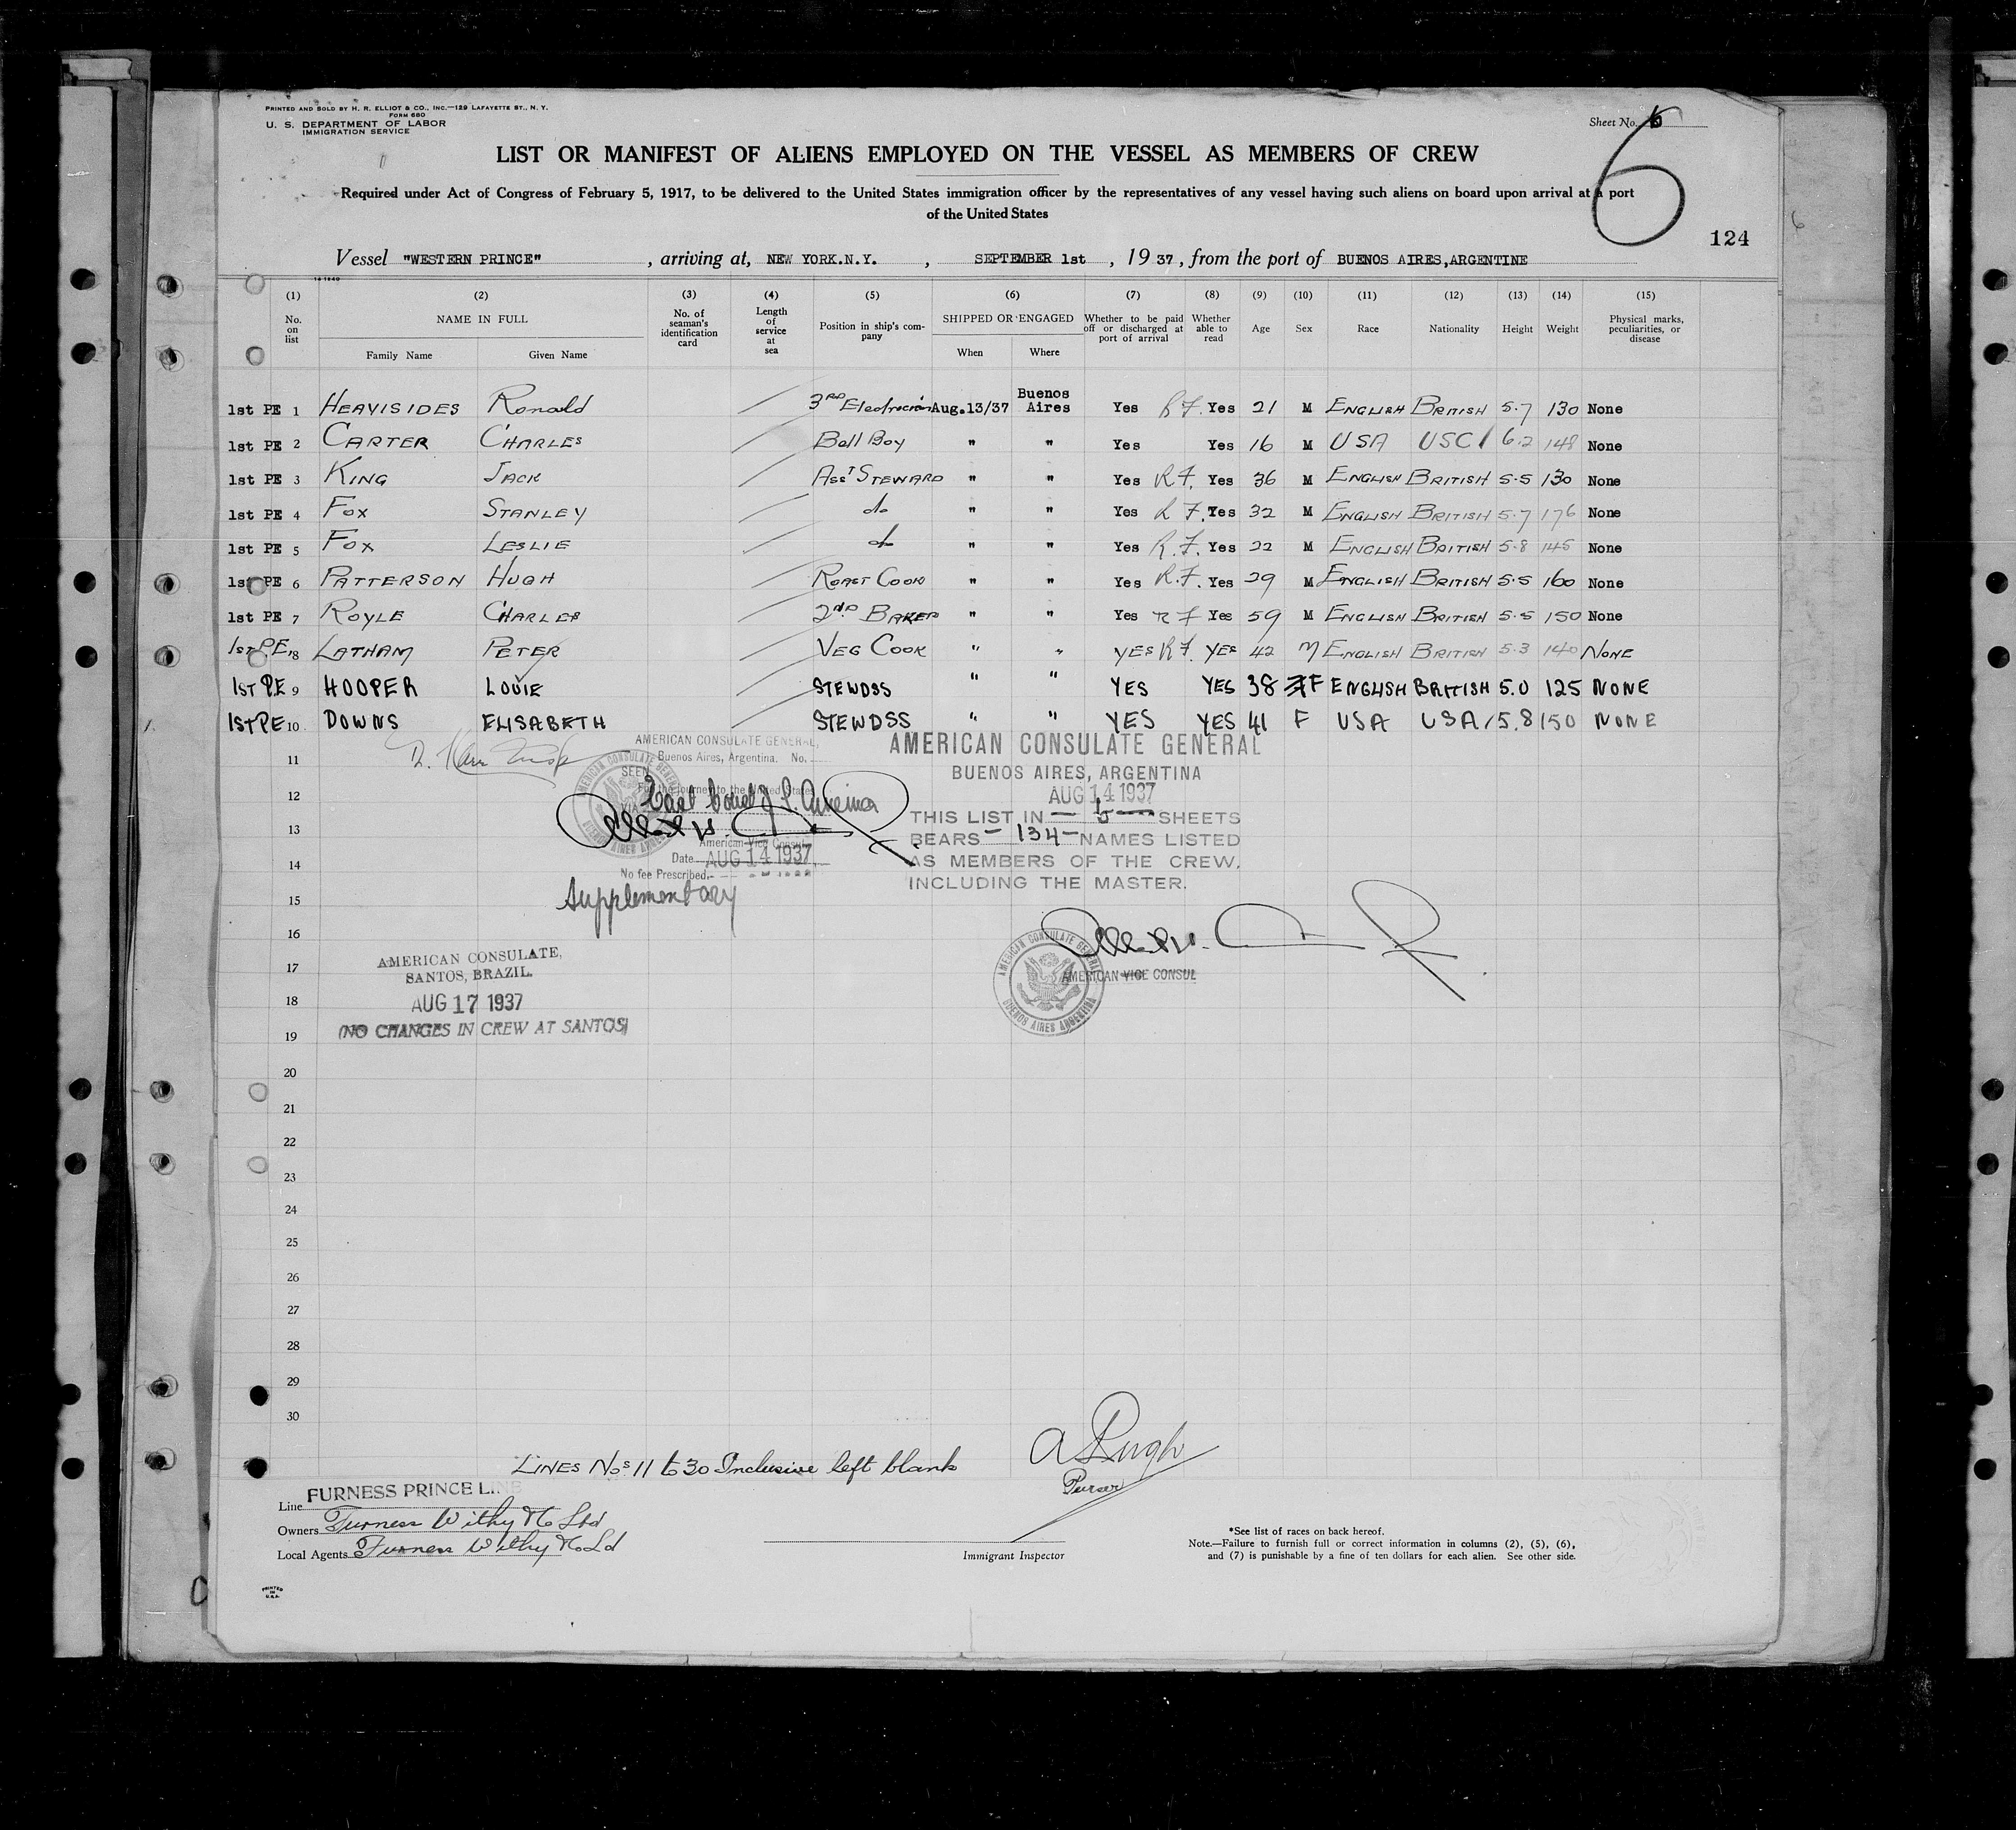 PRINTED AND SOLD BY H. R. ELLIOT & CO., INC.—129 LAFAYETTE ST., N. Y.
FORM 680
U. S. DEPARTMENT OF LABOR
IMMIGRATION SERVICE
Sheet No. 6
6
LIST OR MANIFEST OF ALIENS EMPLOYED ON THE VESSEL AS MEMBERS OF CREW
Required under Act of Congress of February 5, 1917, to be delivered to the United States immigration officer by the representatives of any vessel having such aliens on board upon arrival at a port
of the United States
124
Vessel "WESTERN PRINCE", arriving at, NEW YORK.N.Y., SEPTEMBER 1st, 19 37, from the port of BUENOS AIRES, ARGENTINE
(1) (2) (3) (4) (5) (6) (7) (8) (9) (10) (11) (12) (13) (14) (15)
No. on list NAME IN FULL Family Name Given Name No. of seaman's identification card Length of service at sea Position in ship's company SHIPPED OR ENGAGED When Where Whether to be paid off or discharged at port of arrival Whether able to read Age Sex Race Nationality Height Weight Physical marks, peculiarities, or disease
1st PE 1 HEAVISIDES Ronald 3RD Electrician Aug.13/37 Buenos Aires Yes R.F. Yes 21 M ENGLISH BRITISH 5.7 130 None
1st PE 2 CARTER CHARLES Bell Boy " " Yes Yes 16 M USA USC 6.2 148 None
1st PE 3 KING JACK ASST STEWARD " " Yes R.F. Yes 36 M ENGLISH BRITISH 5.5 130 None
1st PE 4 FOX STANLEY do " " Yes R.F. Yes 32 M ENGLISH BRITISH 5.7 176 None
1st PE 5 FOX LESLIE do " " Yes R.F. Yes 22 M ENGLISH BRITISH 5.8 145 None
1st PE 6 PATTERSON HUGH ROAST COOK " " Yes R.F. Yes 29 M ENGLISH BRITISH 5.5 160 None
1st PE 7 ROYLE CHARLES 2ND BAKER " " Yes R F Yes 59 M ENGLISH BRITISH 5.5 150 None
1st PE 8 LATHAM PETER VEG COOK " " YES R.F. YES 42 M ENGLISH BRITISH 5.3 140 NONE
1ST P.E 9 HOOPER LOUIE STEWDSS " " YES YES 38 F ENGLISH BRITISH 5.0 125 NONE
1ST PE 10 DOWNS ELISABETH STEWDSS " " YES YES 41 F USA USA 5.8 150 NONE
11
12
13
14
15
16
17
18
19
20
21
22
23
24
25
26
27
28
29
30
AMERICAN CONSULATE GENERAL,
Buenos Aires, Argentina. No.
SEEN
For the journey to the United States
American Vice Consul
Date AUG 14 1937
No fee Prescribed.
Supplementary
AMERICAN CONSULATE GENERAL
BUENOS AIRES, ARGENTINA
AUG 14 1937
THIS LIST IN — 6 — SHEETS
BEARS — 134 — NAMES LISTED
AS MEMBERS OF THE CREW.
INCLUDING THE MASTER.
AMERICAN VICE CONSUL
AMERICAN CONSULATE GENERAL
BUENOS AIRES ARGENTINA
AMERICAN CONSULATE,
SANTOS, BRAZIL.
AUG 17 1937
(NO CHANGES IN CREW AT SANTOS)
LINES Nos 11 to 30 Inclusive left blank
A Pugh
Purser
Line FURNESS PRINCE LINE
Owners Furness Withy & Co Ltd
Local Agents Furness Withy & Co Ld
Immigrant Inspector
*See list of races on back hereof.
Note.—Failure to furnish full or correct information in columns (2), (5), (6),
and (7) is punishable by a fine of ten dollars for each alien. See other side.
PRINTED
IN
U.S.A.